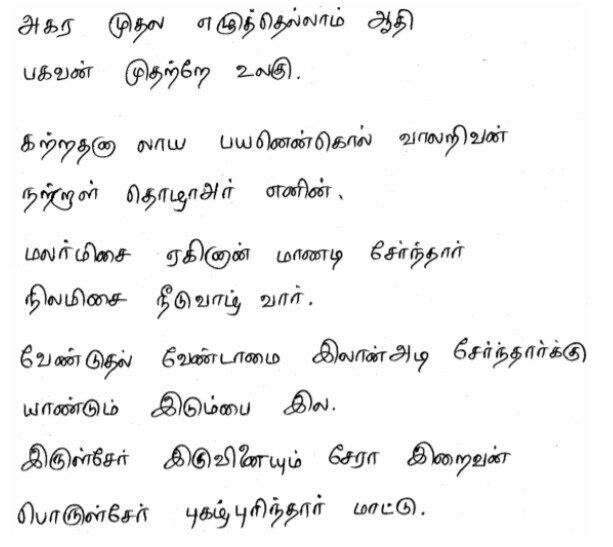 அகர முதல எழுத்தெல்லாம் ஆதி
பகவன் முதற்றே உலகு.
கற்றதனா லாய பயனென்கொல் வாலறிவன்
நற்றாள் தொழாஅர் எனின்.
மலர்மிசை ஏகினான் மாணடி சேர்ந்தார்
நிலமிசை நீடுவாழ் வார்.
வேண்டுதல் வேண்டாமை இலான்அடி சேர்ந்தார்க்கு
யாண்டும் இடும்பை இல.
இருள்சேர் இருவினையும் சேரா இறைவன்
பொருள்சேர் புகழ்புரிந்தார் மாட்டு.